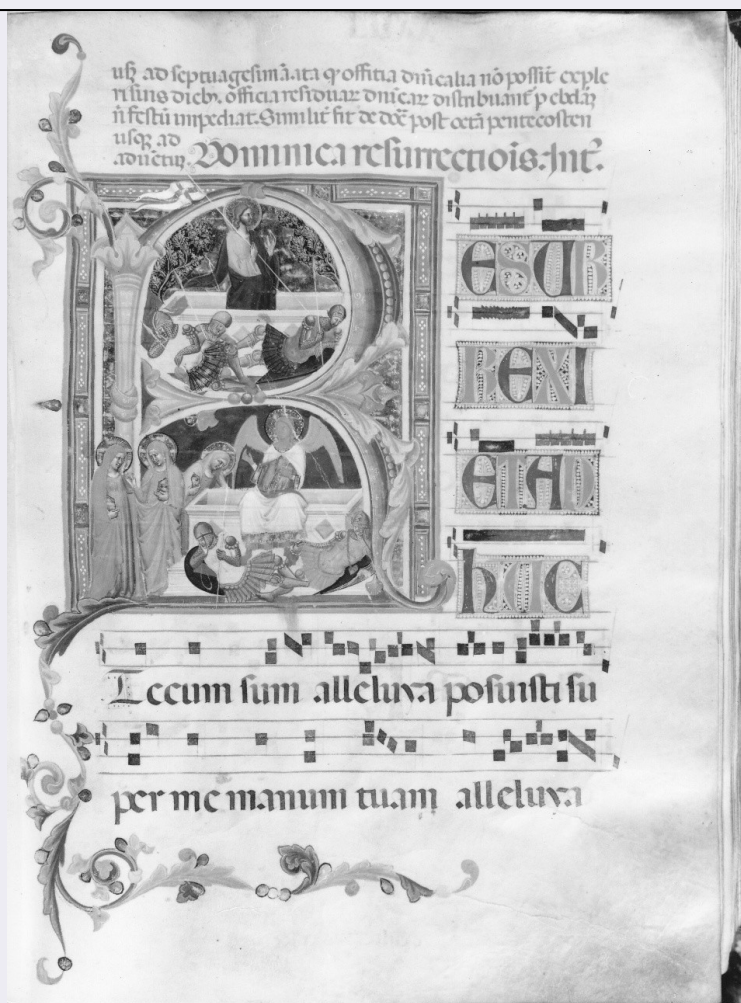 usq ad septuagesimā. ita q officia dn̄icalia nō possit exple
ri suis dieb. officia residuar dn̄icar distribuant p ebdaz
n festū impediat. Similit fit de doē post octā pentecosten
usqz ad
aduentū. Dominica resurrectiois. Int.
R ESUR
REXI
ET AD
hUC
Tecum sum alleluya posuisti su
per me manum tuam alleluya